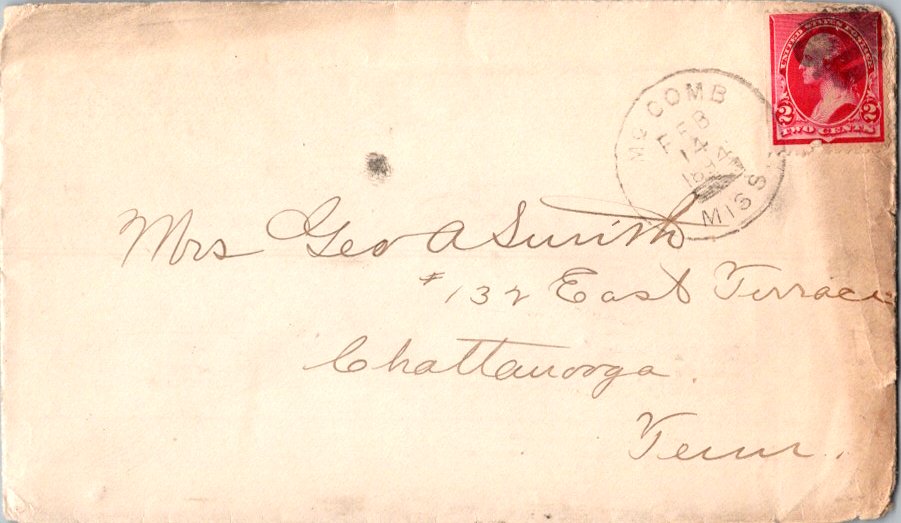 UNITED STATES POSTAGE
2 2
TWO CENTS
MC COMB
FEB
14
MISS
Mrs Geo A Smith
# 132 East Terrace
Chattanooga
Tenn